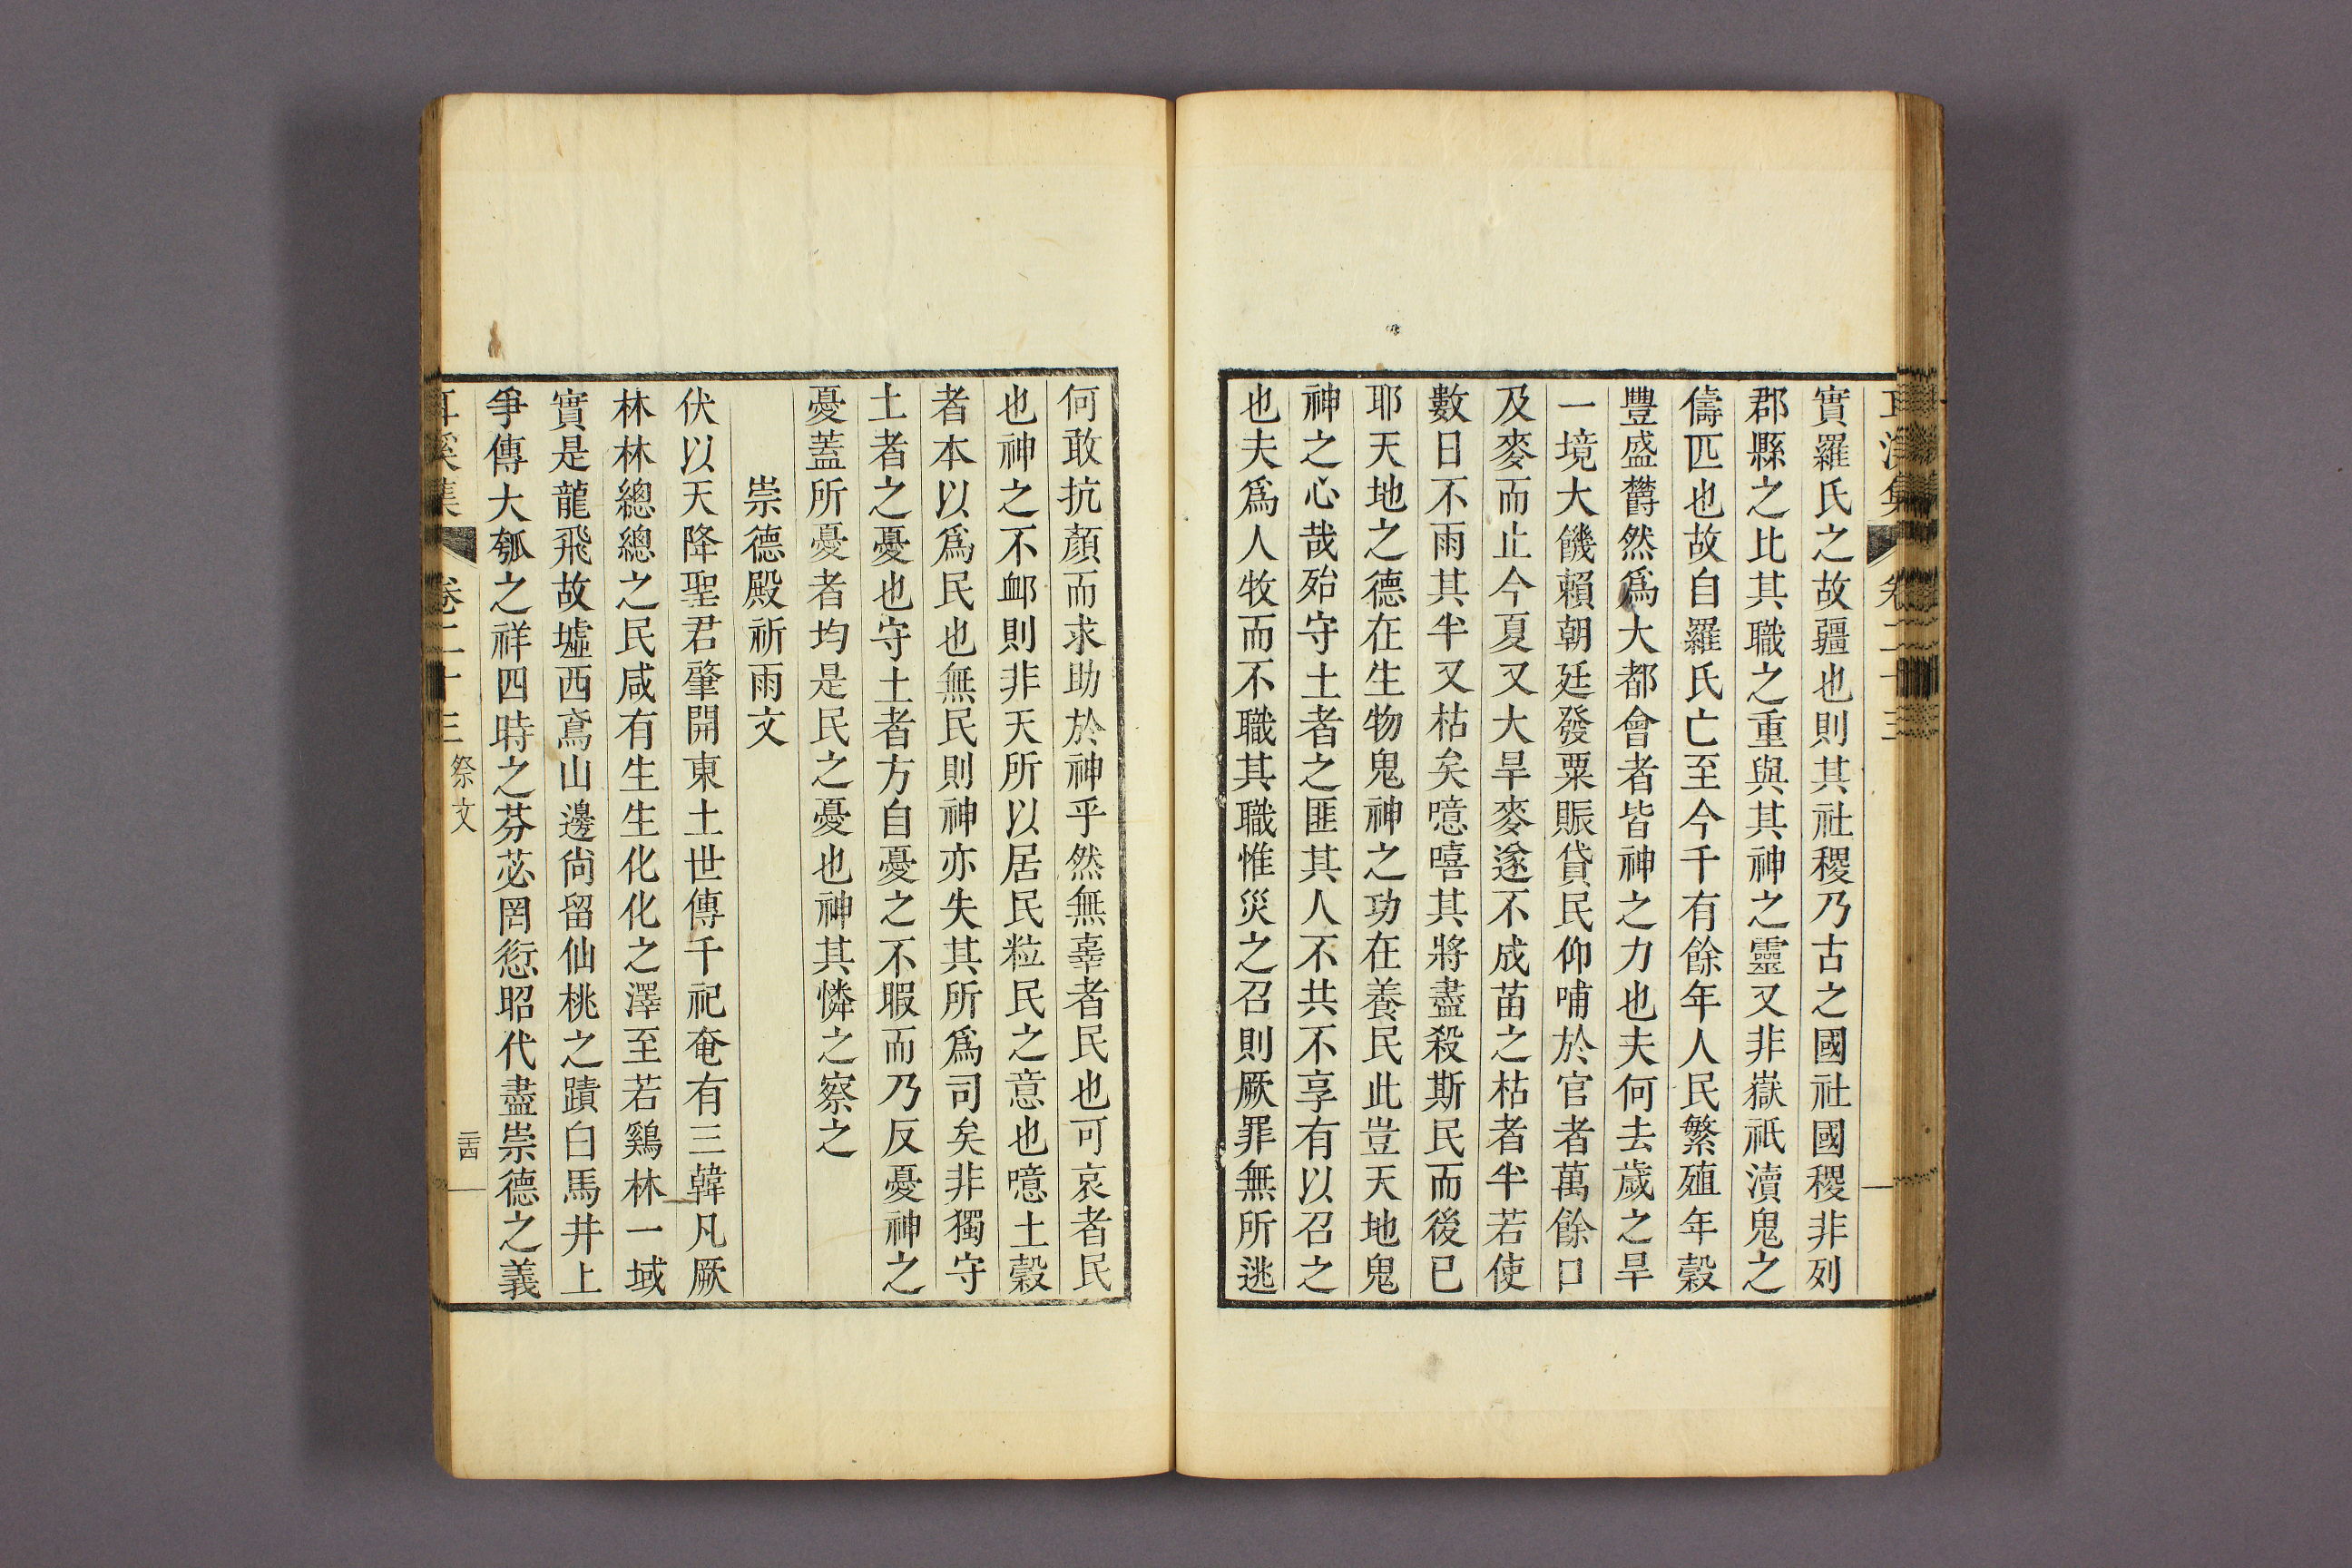 實羅氏之故疆也則其社稷乃古之國社國稷非列
郡縣之比其職之重與其神之靈又非嶽祇瀆鬼之
儔匹也故自羅氏亡至今千有餘年人民繁殖年穀
豐盛欝然爲大都會者皆神之力也夫何去歲之旱
一境大饑賴朝廷發粟賑貸民仰哺於官者萬餘口
及麥而止今夏又大旱麥遂不成苗之枯者半若使
數日不雨其半又枯矣噫嘻其將盡殺斯民而後已
耶天地之德在生物鬼神之功在養民此豈天地鬼
神之心哉殆守土者之匪其人不共不享有以召之
也夫爲人牧而不職其職惟災之召則厥罪無所逃
何敢抗顏而求助於神乎然無辜者民也可哀者民
也神之不卹則非天所以居民粒民之意也噫土穀
者本以爲民也無民則神亦失其所爲司矣非獨守
土者之憂也守土者方自憂之不暇而乃反憂神之
憂蓋所憂者均是民之憂也神其憐之察之
崇德殿祈雨文
伏以天降聖君肇開東土世傳千祀奄有三韓凡厥
林林總總之民咸有生生化化之澤至若鷄林一域
實是龍飛故墟西鳶山邊尙留仙桃之蹟白馬井上
爭傳大瓠之祥四時之芬苾罔愆昭代盡崇德之義
耳溪集 卷二十三 祭文 二十四